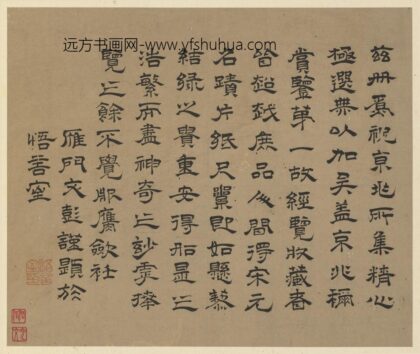 远方书画网-www.yfshuhua.com
兹册為祝京兆所集精心
極選無以加矣蓋京兆稱
賞鑒第一故經覽收藏者
皆超越庶品間得宋元
名蹟片紙尺即如懸藜
結綠之貴重安得船盈之
浩繁而盡神奇之妙
覽之餘不覺服膺斂衽
雁門文彭謹題於
悟言室